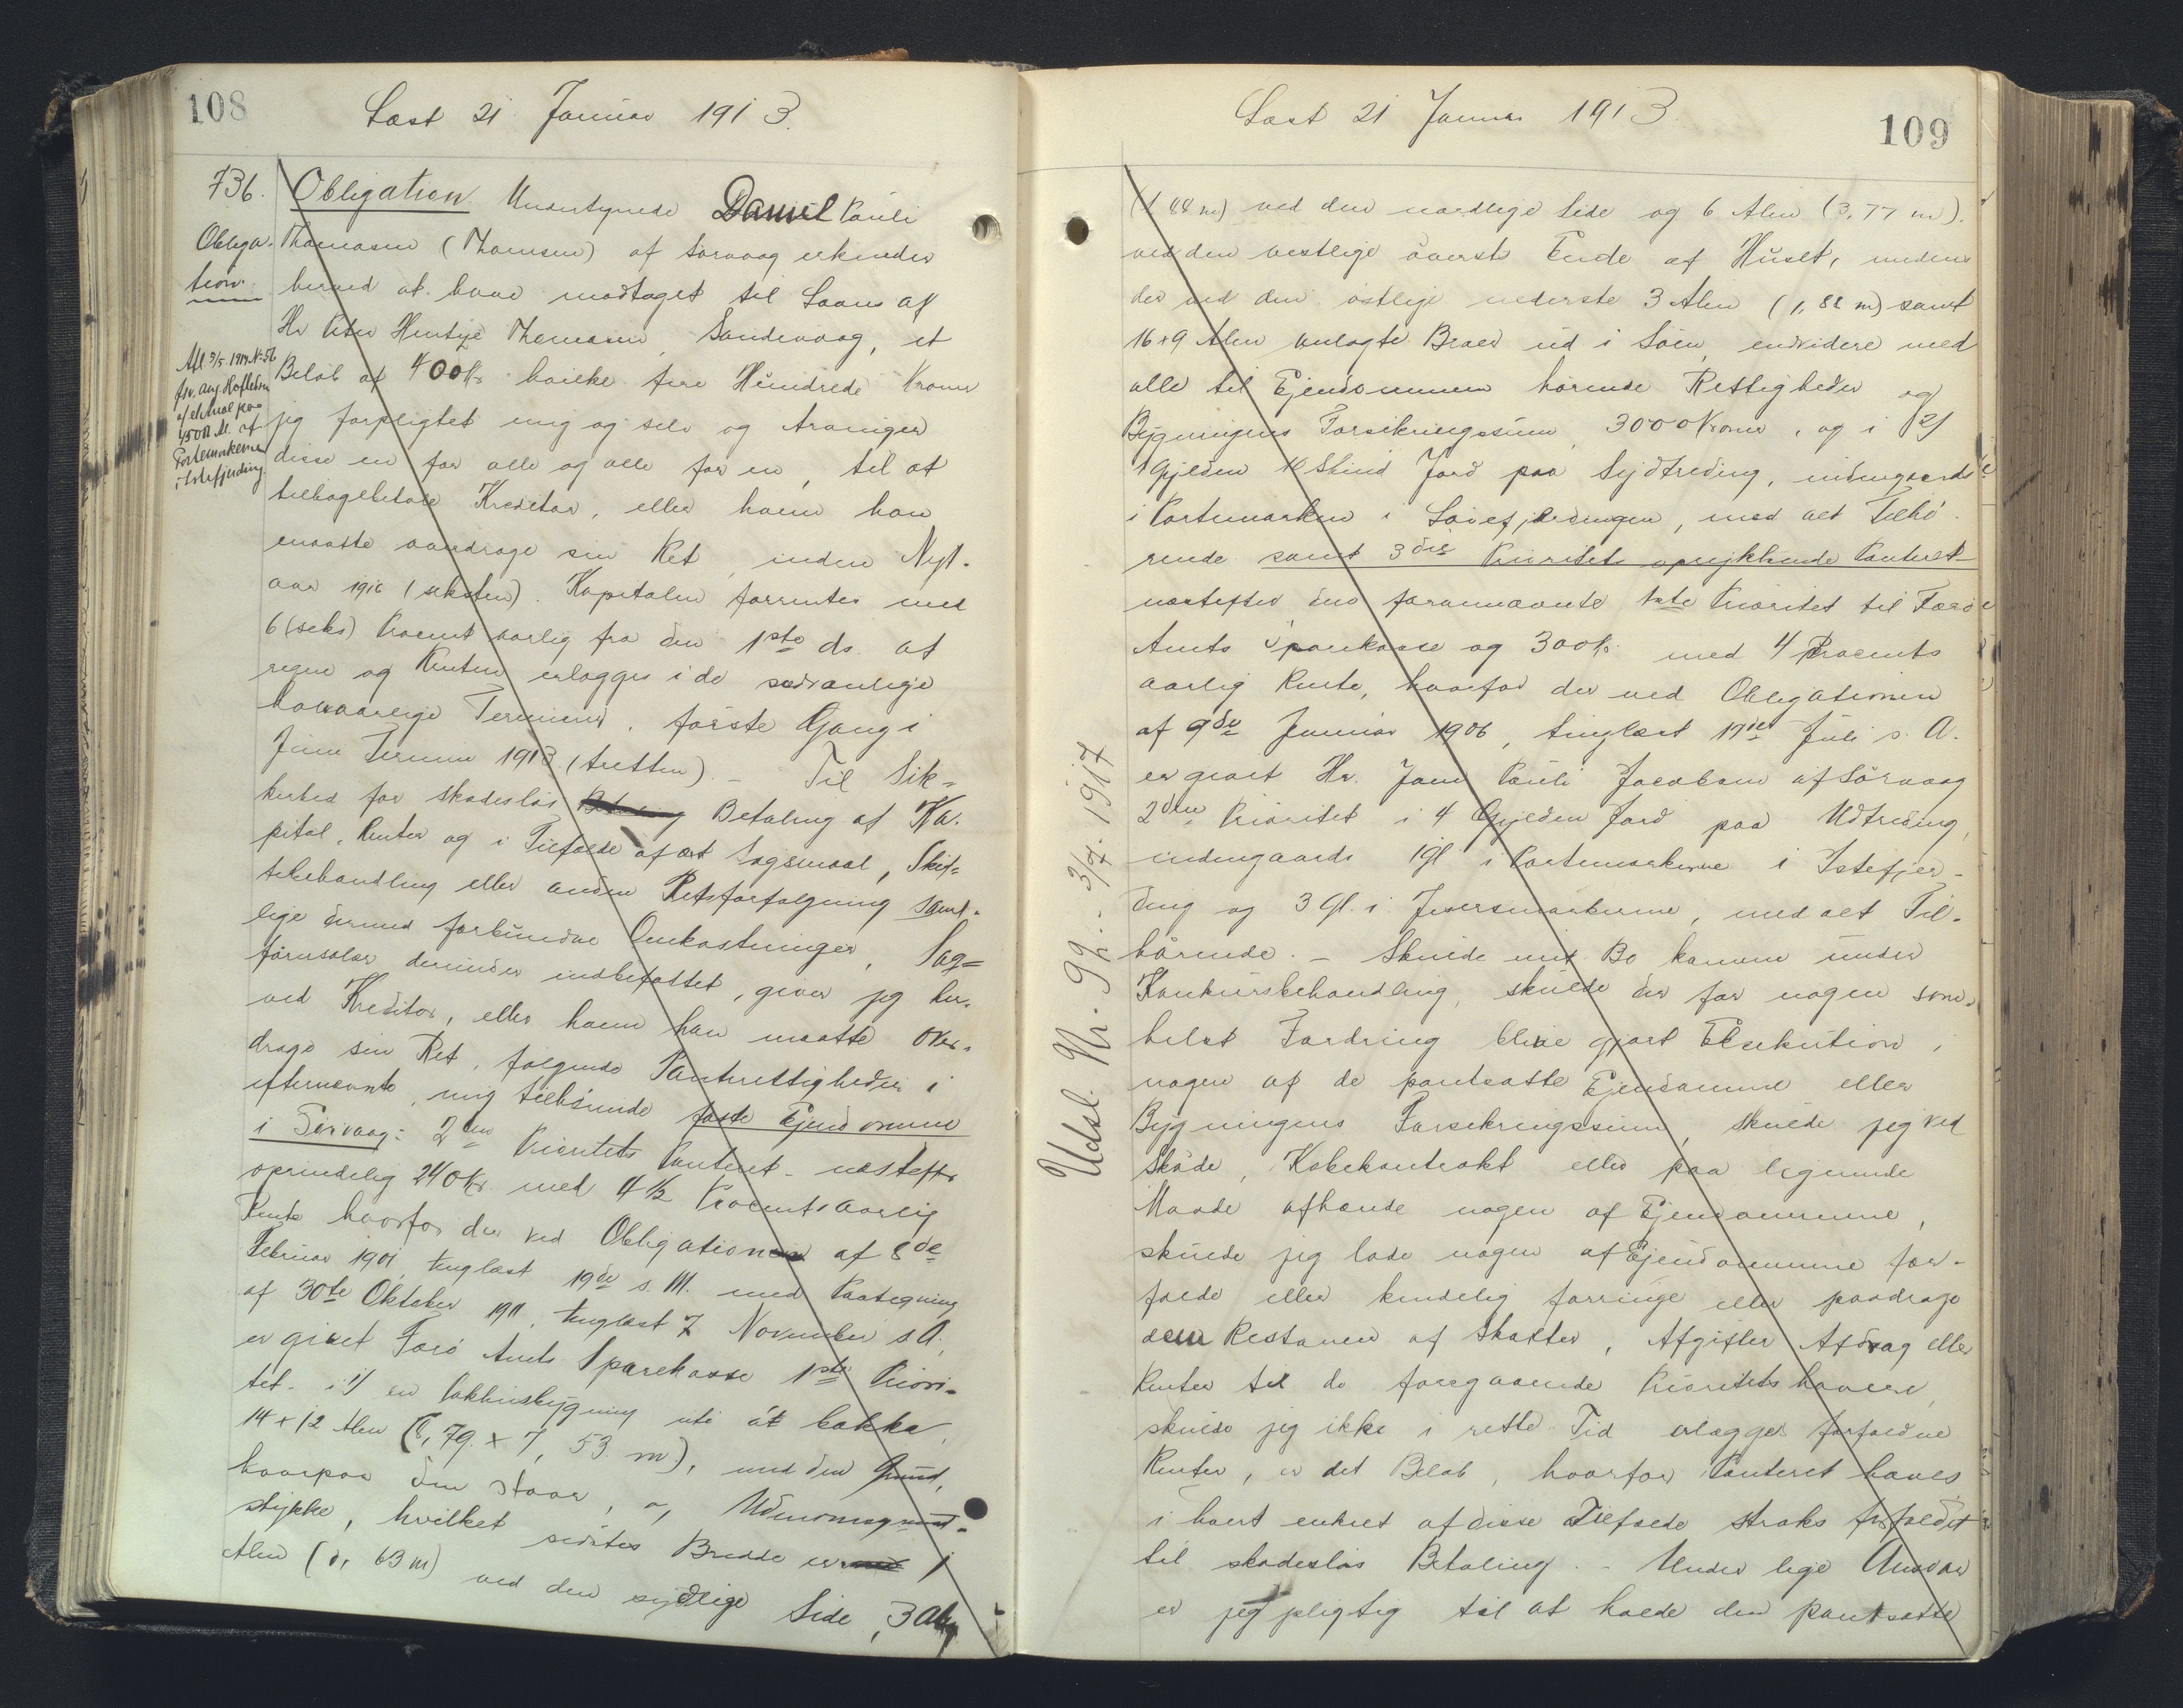 108
Læst 21 Januar 1913.
736.
Obliga-
tion.
Afl 3/5 1914 No 56
Obligation. Undertegnede Daniel Pauli
Thomasen (Thomsen) af Sørvaag erkender
herved at have modtaget til Laans af
Hr Peter Hentze Thomasen, Sandevaag, et
Beløb af 400 Kr hvilke fire Hundrede Kroner
jeg forpligtet mig og selv og Arvinger
disse en for alle og alle for en, til at
tilbagebetale Kreditor, eller hvem han
maatte overdrage sin Ret, inden Nyt-
aar 1916 (seksten). Kapitalen forrentes med
6 (seks) Procent aarlig fra den 1ste ds. at
regne og Renten erlægges i de sædvanlige
halvaarlige Terminer, første Gang i
Juni Termin 1913 (tretten). – Til Sik-
kerhed for skadesløs Betaling af Ka-
pital, Renter og i Tilfælde af at Søgsmaal, Skif-
tebehandling eller anden Retsforfølgning samt-
lige dermed forbundne Omkostninger, Sag-
førersalær derunder indbefattet, giver jeg her-
ved Kreditor, eller hvem han maatte over-
drage sin Ret, følgende Panterettigheder i
efternævnte, mig tilhørende faste Ejendomme
i Sørvaag: 2den Prioritets Panteret - næstefter
oprindelig 240 Kr. med 4 1/2 Procents aarlig
Rente hvorfor der ved Obligationen af 8de
Februar 1901 tinglæst 19de s. M. med Paategning
af 30te Oktober 1911, tinglæst 7 November s. A.
er givet Færø Amts Sparekasse 1ste Priori-
tet - i 1) en Pakhusbygning uti á bakka,
14 x 12 Alen (8,79 x 7,53 m), med den Grund,
hvorpaa den staar, og Udenomsgrund-
stykke, hvilket sidstes Bredde er 1
Alen (0,63 m) ved den sydlige Side, 3 Alen
109
Læst 21 Januar 1913.
(1,88 m) ved den nordlige Side og 6 Alen (3,77 m).
ved den vestlige øverste Ende af Huset, medens
der ved den østlige nederste 3 Alen (1,88 m) samt
16 x 9 Alen anlagte Broer ud i Søen, endvidere med
alle til Ejendommen hørende Rettigheder og
Bygningens Forsikringssum, 3000 Kroner, og i 2)
1 Gylden 10 Skind Jord paa Sydtreding, indengaards
i Portemarken i Løvefjerdingen, med alt Tilhø-
rende samt 3die Prioritets oprykkende Panteret
næstefter den forannævnte 1ste Prioritet til Færø
Amts Sparekasse og 300 Kr. med 4 Procents
aarlig Rente, hvorfor der ved Obligationen
af 9de Januar 1906, tinglæst 17de Juli s. A.
er givet Hr. Jens Pauli Jacobsen af Sørvaag
2den Prioritet i 4 Gylden Jord paa Udtreding,
indengaards 1 Gl i Portemarkerne i Istefjer-
ding og 3 Gl. i Jversmarkerne, med alt Til-
hørende. – Skulde mit Bo komme under
Konkursbehandling, skulde der for nogen som-
helst Fordring blive gjort Eksekution i
nogen af de pantsatte Ejendomme eller
Bygningens Forsikringssum, skulde jeg ved
Skøde, Købekontrakt eller paa lignende
Maade afhænde nogen af Ejendommene,
skulde jeg lade nogen af Ejendommene for-
falde eller kendelig forringe eller paadrage
dem Restancer af Skatter, Afgifter Afdrag eller
Renter til de foregaaende Prioritetshavere,
skulde jeg ikke i rette Tid erlægge forfaldne
Renter, er det Beløb, hvorfor Panteret haves
i hvert enkelt af disse Tilfælde straks forfaldet
til skadesløs Betaling. – Under lige Ansvar
er jeg pligtig til at holde den pantsatte
Udsl. Nr. 99 - 3/7 1917